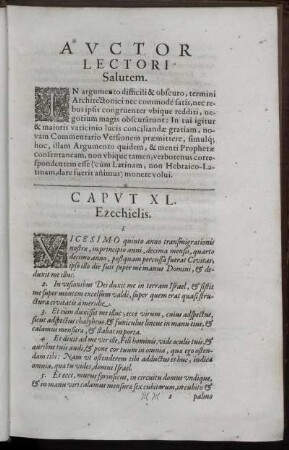 AVCTOR
LECTORI
Salutem.
IN argumento difficili & obscuro, termini
Architectonici nec commodè satis, nec re-
bus ipsis congruenter vbique redditi, ne-
gotium magis obscurant: In tui igitur
& maioris vaticinio lucis conciliandæ gratiam, no-
uam Commentario Versionem præmittere, simulq;
hoc, illam Argumento quidem, & menti Prophetæ
consentaneam, non vbique tamen, verbotenus corre-
spondentem esse (cùm Latinam, non Hebraico-La-
tinam, dare fuerit animus) monere volui.
CAPVT XL.
Ezechielis.
1
VICESIMO quinto anno transmigrationis
nostræ, in principio anni, decima mensis, quarto
decimo anno, postquam percussa fuerat Ciuitas,
ipso illo die fuit super me manus Domini, & de-
duxit me illuc.
2. In visionibus Dei duxit me in terram Israel, & sistit
me super montem excelsum valdè, super quem erat quasi stru-
ctura ciuitatis à meridie.
3. Et cùm duxisset me illuc, ecce virum, cuius adspectus,
sicut adspectus chalybeus, & funiculus lineus in manu eius, &
calamus mensuræ, & stabat in porta.
4. Et dixit ad me vir ille, Fili hominis, vide oculis tuis, &
auribus tuis audi, & pone cor tuum in omnia, quæ ego osten-
dam tibi: Nam vt ostenderem tibi adductus es huc, indica
omnia, quæ tu vides, domui Israel.
5. Et ecce, murus forinsecus, in circuitu domus vndique,
& in manu viri calamus mensuræ sex cubitorum, in cubito &
2 palmo